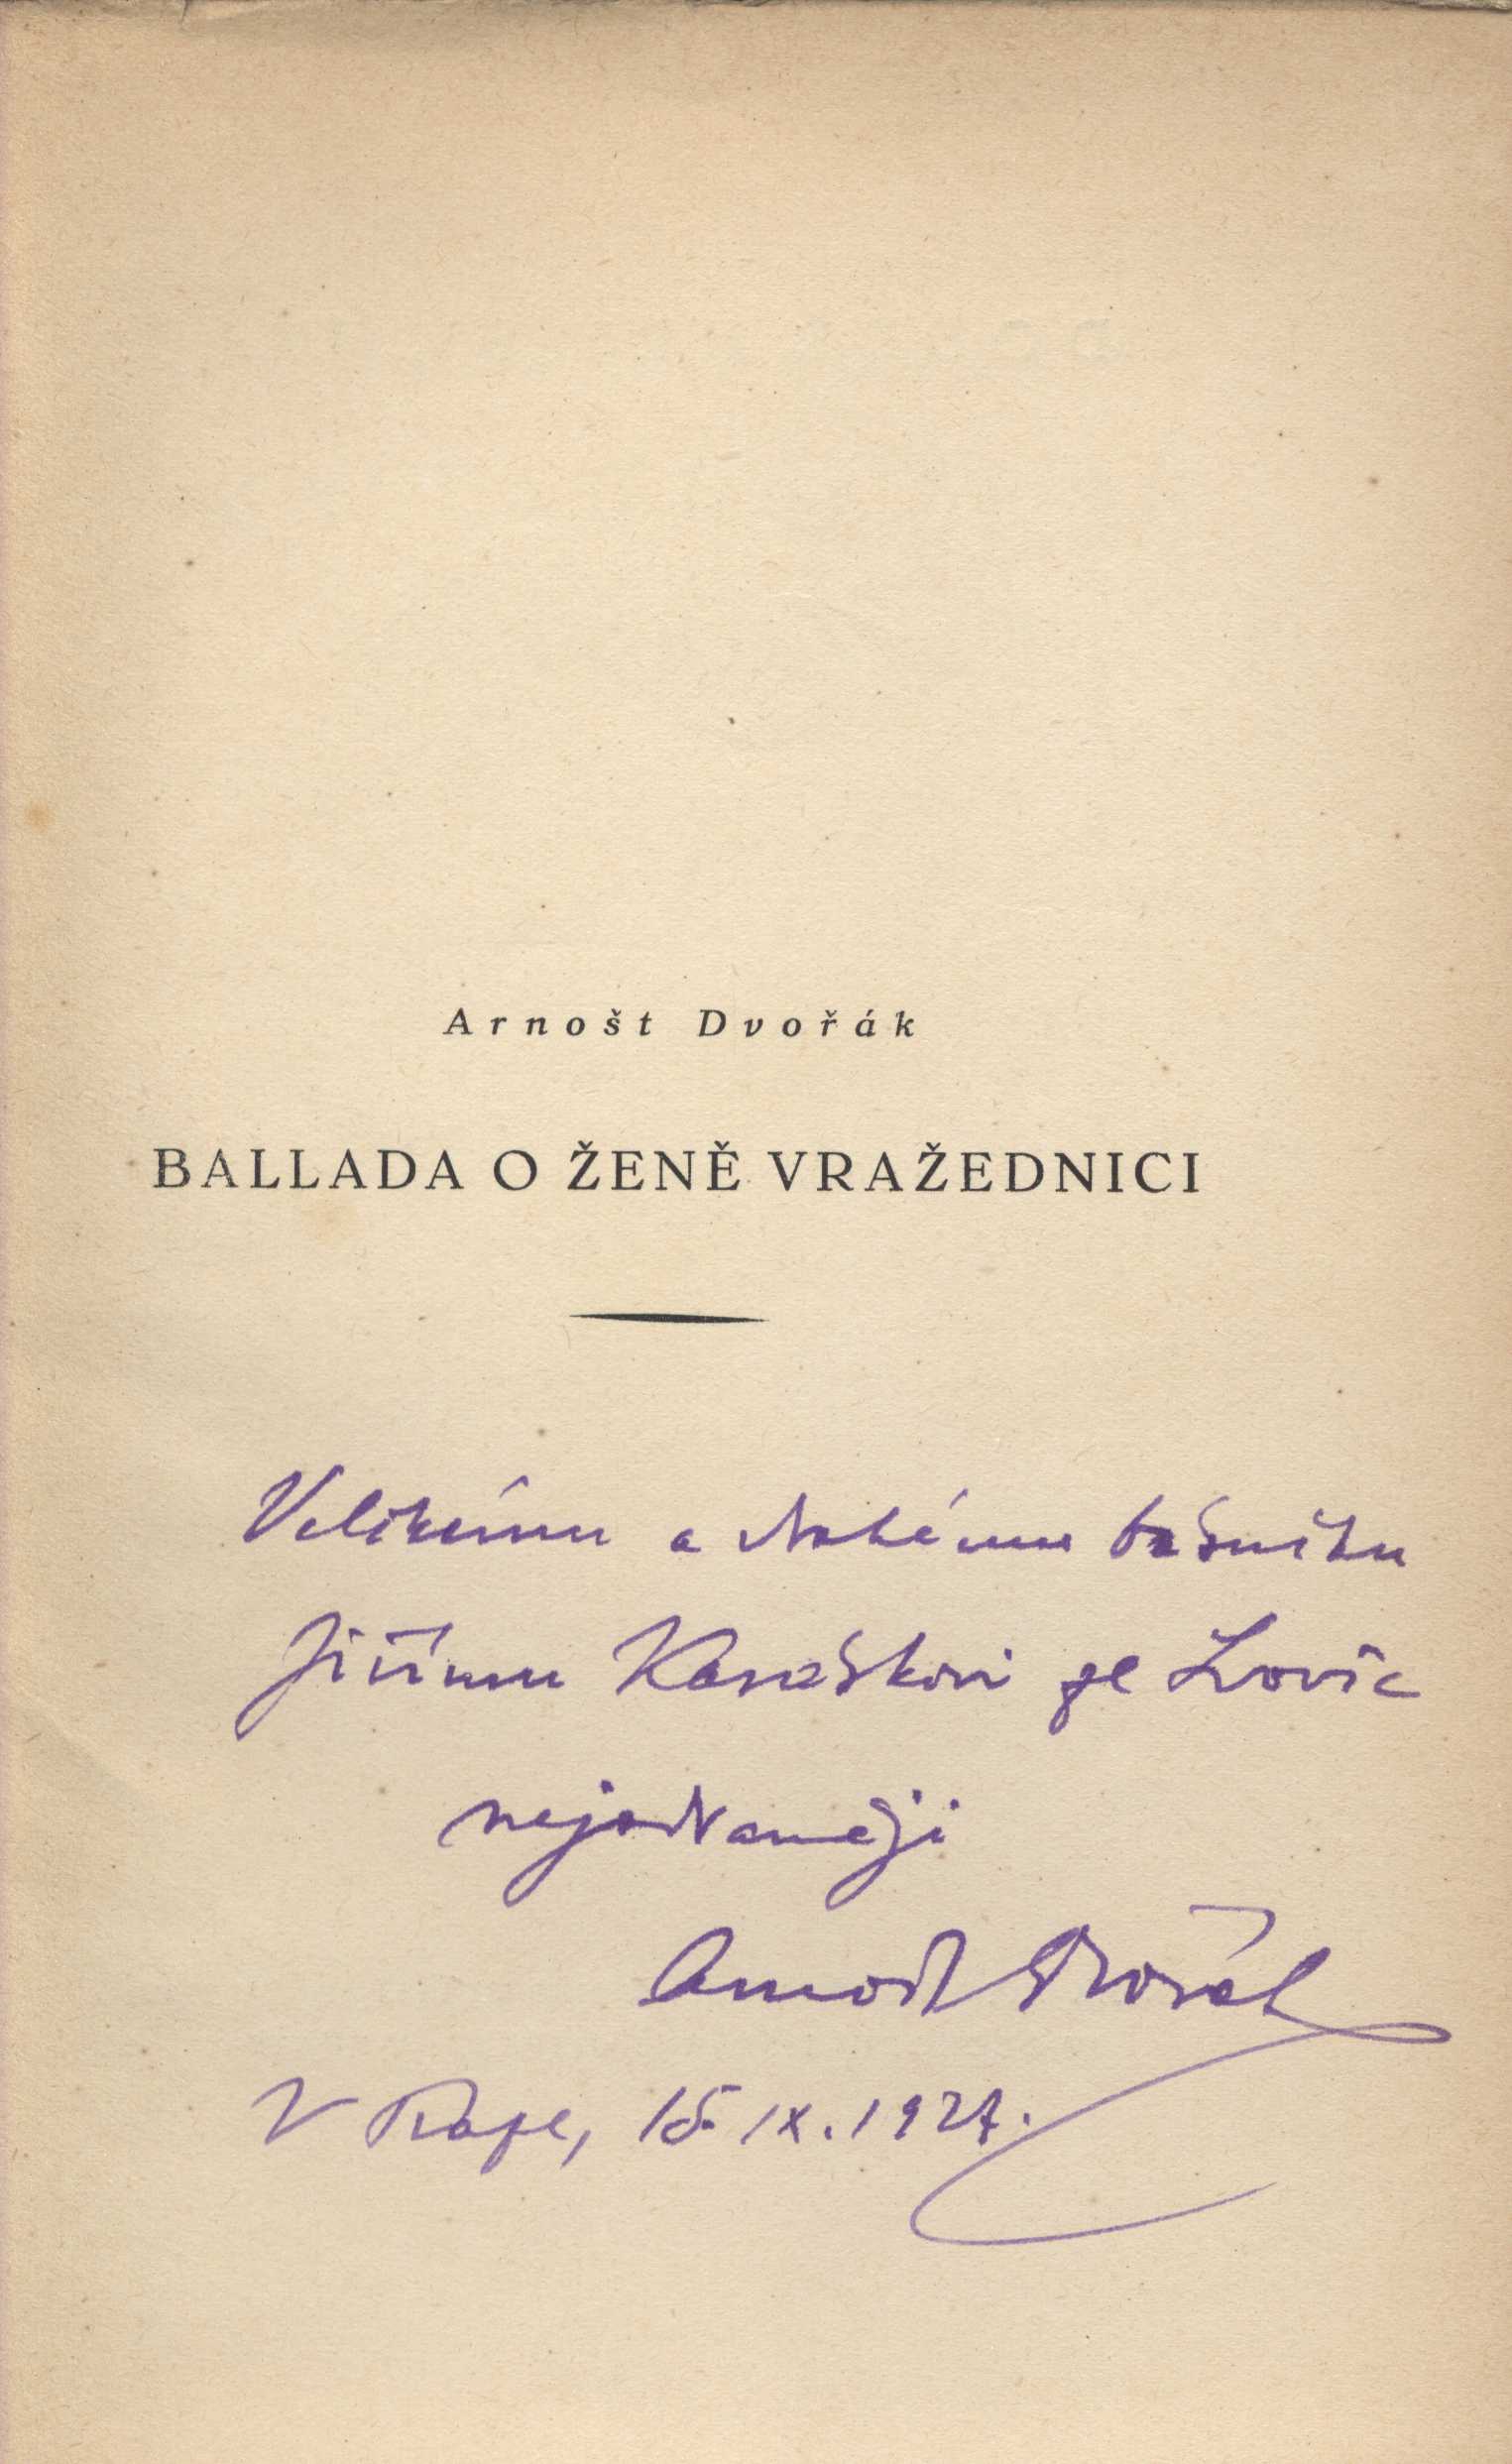 Arnošt Dvořák
BALLADA O ŽENĚ VRAŽEDNICI
Velikému a drahému básníku
Jiřímu Karáskovi ze Lvovic
nejoddaněji
Arnošt Dvořák
V Praze, 15. IX. 1927.